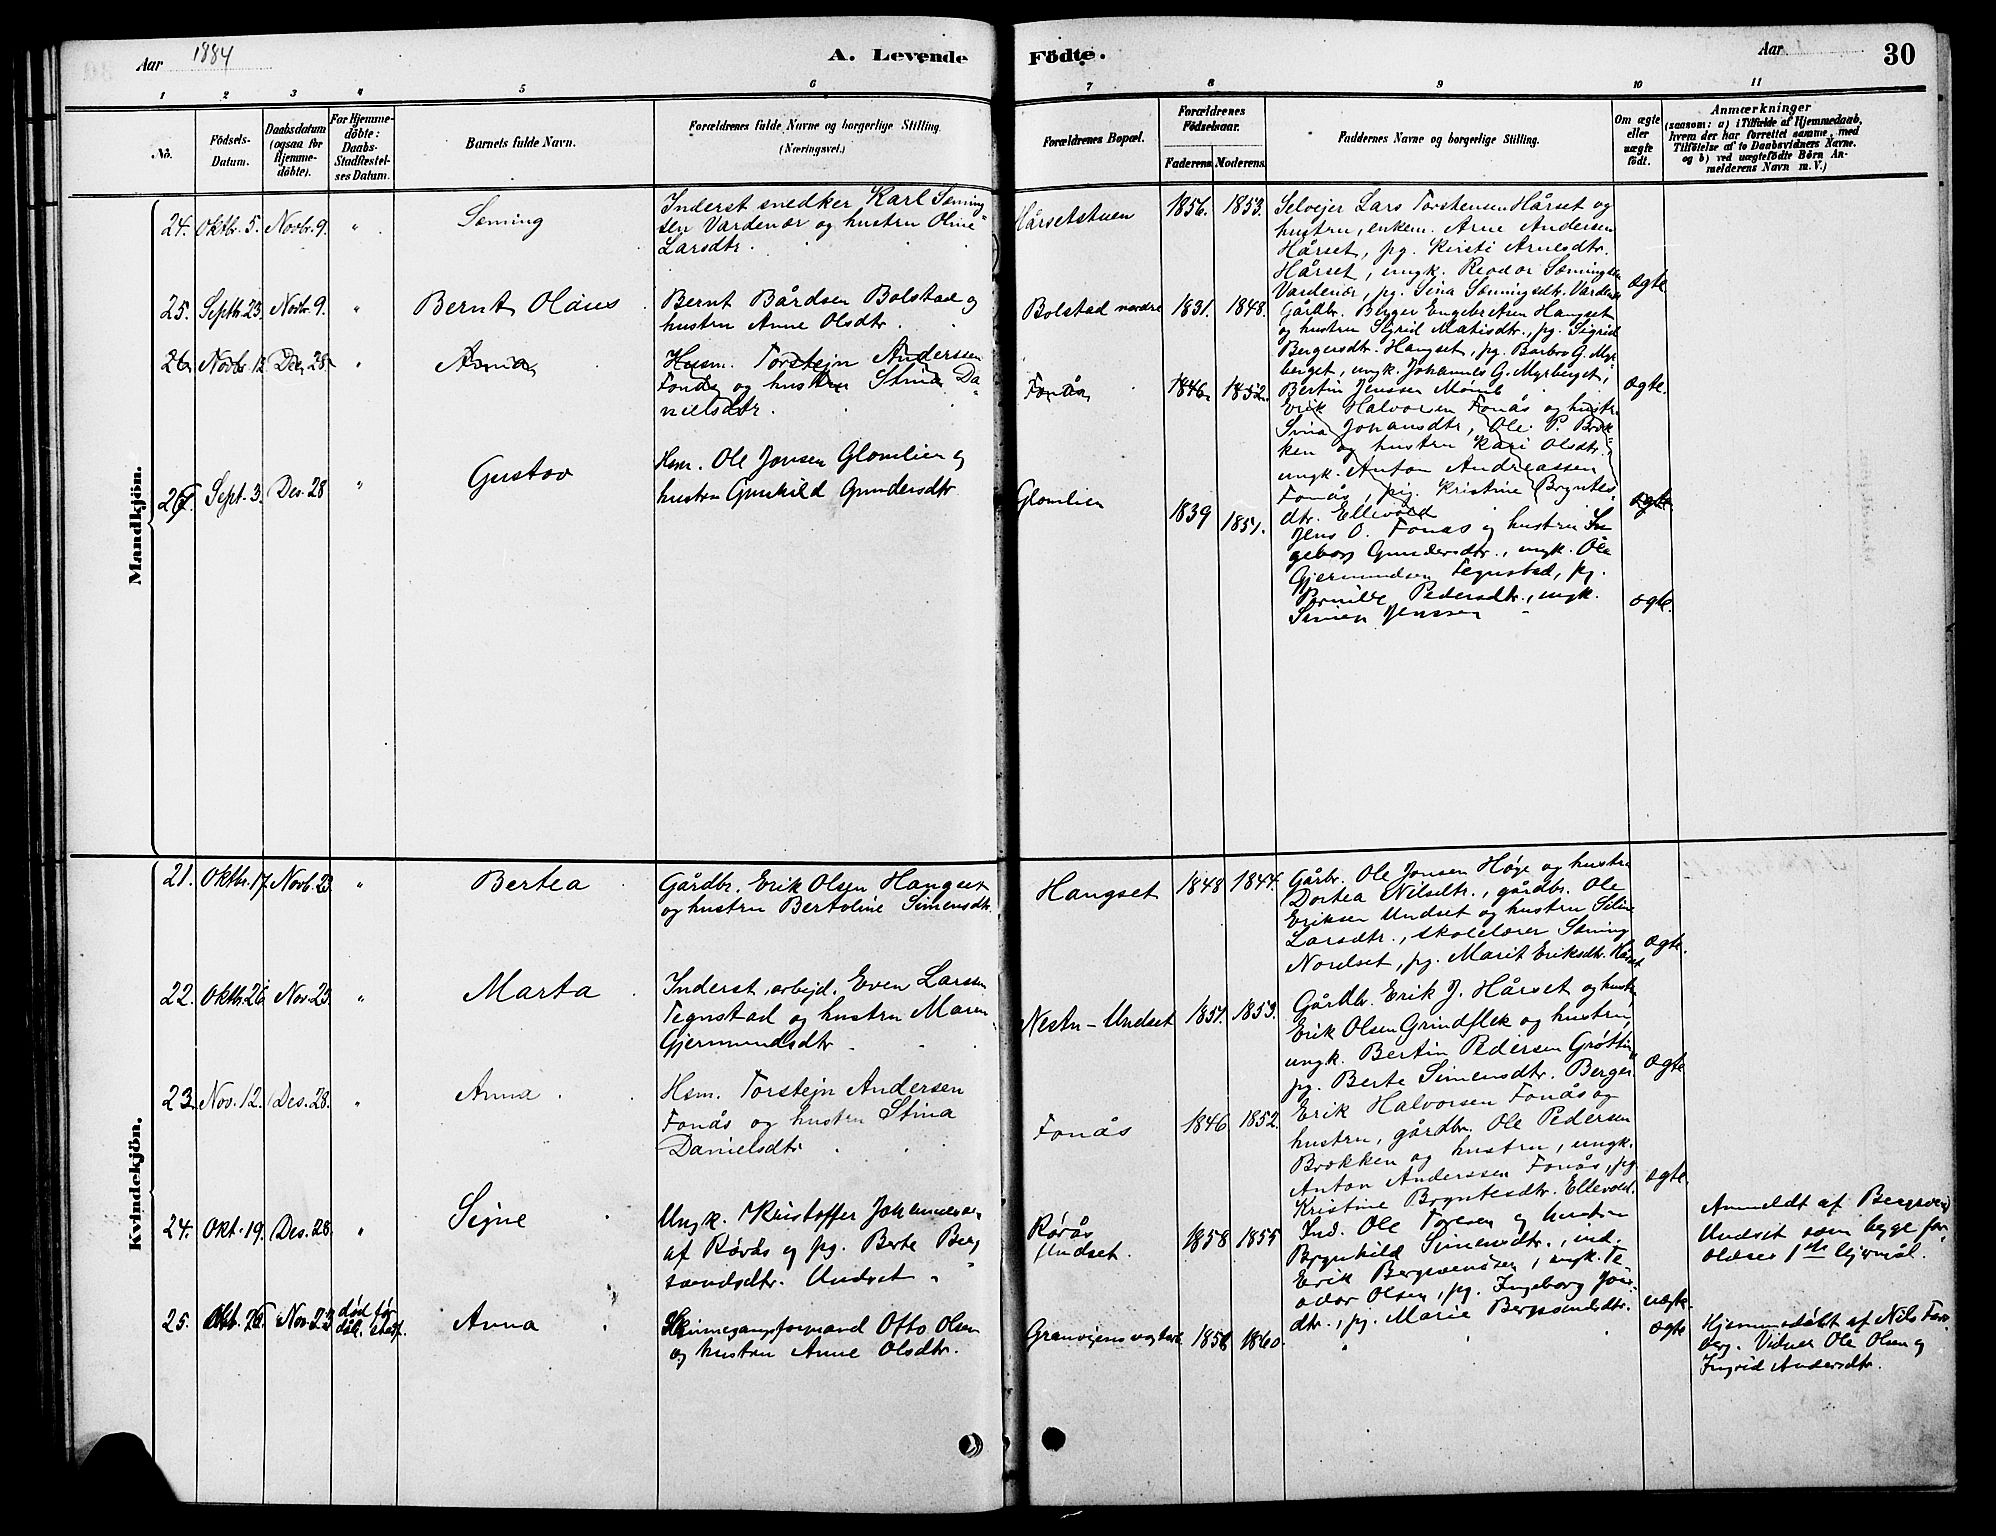 Aar 1884
A. Levende
Födte.
Aar
30
1 2 3 4 5 6 7 8 9 10 11
No.
Födsels-
Datum.
Daabsdatum
(ogsaa for
Hjemme-
döbte).
For Hjemme-
döbte:
Daabs-
Stadfæstel-
ses Datum.
Barnets fulde Navn.
Forældrenes fulde Navne og borgerlige Stilling.
(Næringsvei.)
Forældrenes Bopæl.
Forældrenes
Födselsaar.
Faderens. Moderens.
Faddernes Navne og borgerlige Stilling.
Om ægte
eller
uægte
født.
Anmærkninger
(saasom: a) i Tilfælde af Hjemmedaab,
hvem der har forrettet samme, med
Tilföielse af to Daabsvidners Navne.
og b) ved uægtefödte Börn An-
melderens Navn m. V.)
Mandkjön.
24. Oktbr. 5. Novbr. 9. "
Sæming
Inderst snedker Karl Sæming-
sen Vardenær og hustru Oline
Larsdtr.
Hårsetstuen
1856. 1853.
Selvejer Lars Torstensen Hårset og
hustru, enkem. Arne Andersen
Hårset, pg. Kirsti Arnesdtr.
Hårset, ungk. Reodor Sæmingsen
Vardenær, pg. Sina Sæmingsdtr. Vardenær
ægte
25. Septbr. 23. Novbr. 9. "
Bernt Olaus
Bernt Bårdsen Bolstad og
hustru Anne Olsdtr.
Bolstad nordre
1831. 1848.
Gårdbr. Berger Engebretsen Hangset
og hustru Sigrid Matisdtr., pg. Sigrid
Bergersdtr. Hangset, pg. Barbro G. Myr-
berget, ungk. Johannes G. Myrberget,
Bertin Jenssen
ægte.
26 Novbr. 12. Des. 28. "
Anna
Husm. Torstejn Anderssen
Fonås og hustru Stina Da-
nielsdtr.
Fonås
1846. 1852.
Erik Halvorsen Fonås og hustr.
Sina Johansdtr., Ole P. Bræk-
ken og hustru Kari Olsdtr.,
ungk. Anton Andreassen
Fonås, pig. Kristine Bryntes-
dtr. Ellevold
ægte
26 Sept. 3. Des. 28 "
Gustav
Hsm. Ole Jonsen Glomlien og
hustru Gunhild Gundersdtr
Glomlien
1839 1851.
Jens O. Fonås og hustru In-
geborg Gundersdtr., ungk. Ole
Gjermundsen Tegnstad, pg.
Pernille Pedersdtr., ungk.
Simen Jenssen
ægte.
Kvindekjön.
21. Oktbr. 17. Novb. 23. "
Bertea
Gårdbr. Erik Olsen Hangset
og hustru Bertoline Simensdtr.
Hangset
1848 1844.
Gårbr. Ole Jonsen Høye og hustru
Dortea Nilsdtr., gårdbr. Ole
Eriksen Undset og hustru Seline
Larsdtr., skolelærer Sæming
Nordset, pg. Marit Eriksdtr. Hårset
ægte.
22. Oktbr. 26 Nov. 23. "
Marta
Inderst, arbejd. Even Larssen
Tegnstad og hustru Maren
Gjermundsdtr.
Nestu-Undset
1851. 1853.
Gårdbr. Erik J. Hårset og hustru
Erik Olsen Grindflek og hustru,
ungk. Bertin Pedersen Grøtting
pg. Berte Simensdtr. Berger.
ægte
23. Nov. 12. Des. 28. "
Anna
Hsm. Torstejn Andersen
Fonås og hustru Stina
Danielsdtr.
Fonås
1846 1852.
Erik Halvorsen Fonås og
hustru, gårdbr. Ole Pedersen
Brækken og hustru, ungk.
Anton Anderssen Fonås, pg
Kristine Bryntesdtr. Ellevold.
ægte.
24. Okt. 19. Des. 28. "
Signe
Ungk. Kristoffer Johannesen
af Rørås og pg. Berte Berg-
svendsdtr. Undset
Rørås
Undset.
1858 1855
Ind. Ole Toresen og hustru
Brynhild Simensdtr., ind.
Erik Bergsvensen, ungk. Te-
odor Olsen, pg. Ingeborg Jons-
dtr., pg. Marie Bergsvendsdtr.
uægte.
Anmeldt af Bergsvend
Undset som begge for-
ældres 1ste lejermål.
25. Okt. 26 Nov. 23 død før
dåb. stadf.
Anna
Otto Olsen
og hustru Anne Olsdtr.
1856 1860.
"
ægte
Hjemmedøbt af Nils
Vidner Ole Olsen og
Ingrid Andersdtr.